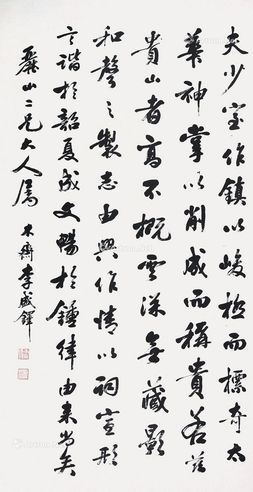 夫少室作鎮以峻極而標奇太
華神掌以削成而稱貴若茲
貴山者高不概雲深無藏影
和聲之製志由興作情以詞宣形
言諧於韶夏成文暢於鍾律由来尚矣
麋山二兄大人属
木齋李盛鐸